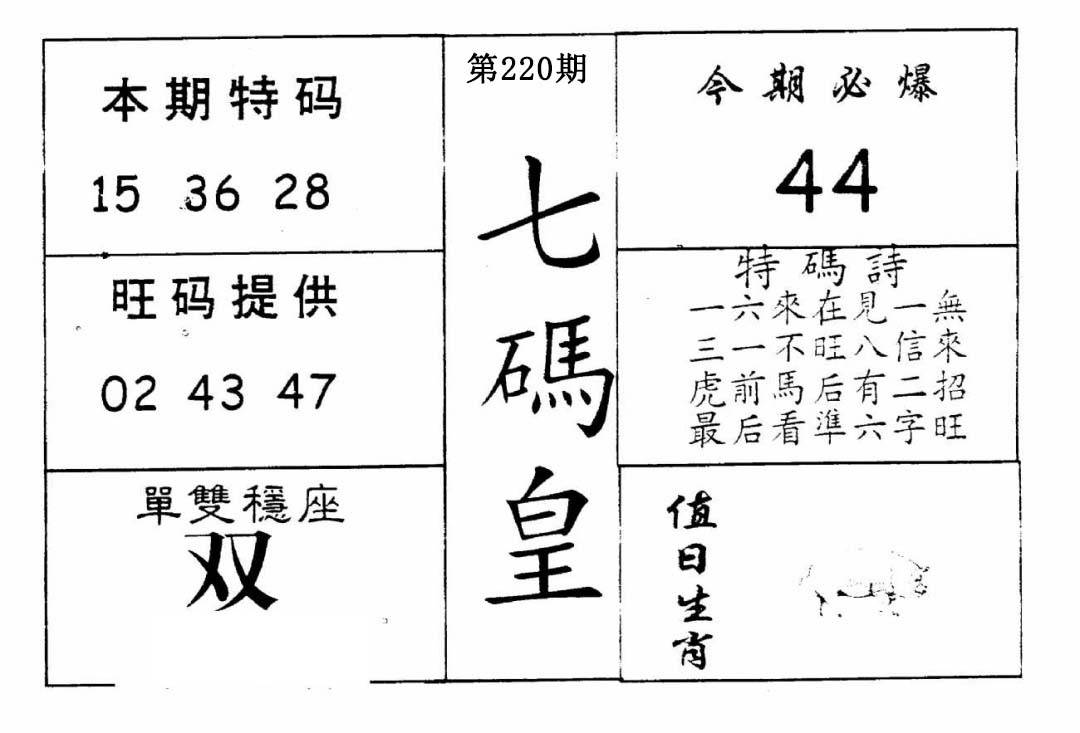 本期特码
15 36 28
旺码提供
02 43 47
單雙穩座
双
第220期
七碼皇
今期必爆
44
特碼詩
一六來在見一無
三一不旺八信來
虎前馬后有二招
最后看準六字旺
值日生肖